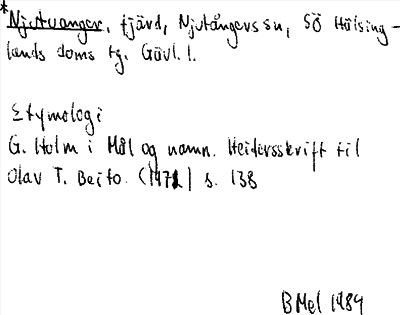 *Njutuanger, fjärd, Njutångers sn, SÖ Hälsing-
lands doms tg. Gävl. l.
Etymologi
G. Holm i Mål og namn. Heidersskrift til
Olav T. Beito. (1971) s. 138
BMel 1989